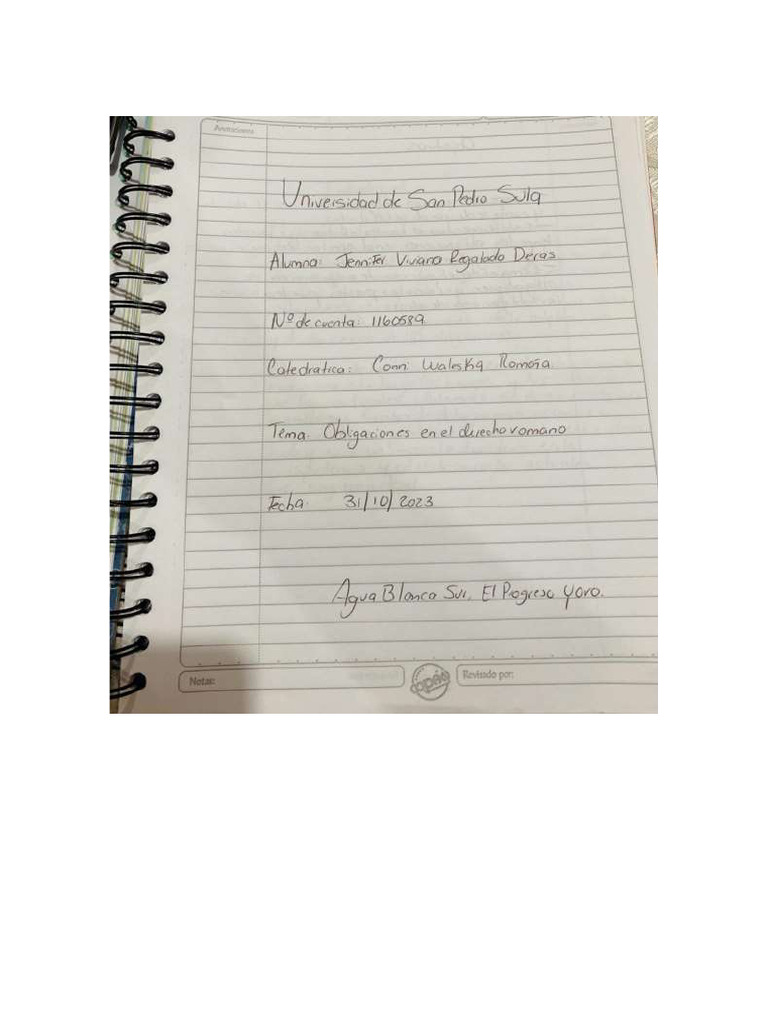 Anotaciones
Universidad de San Pedro Sula
Alumna: Jennifer Viviana Regalado Deras
Nº de cuenta: 1160589
Catedratica: Conni Waleska Romero
Tema. Obligaciones en el derecho romano
Fecha: 31/10/2023
Agua Blanca Sur, El Progreso Yoro.
Notas:
copán
Revisado por: